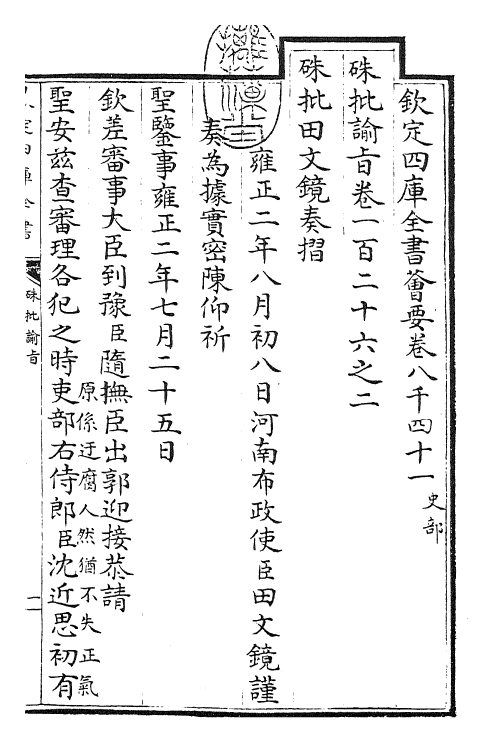 欽定四庫全書薈要卷八千四十一 史部
硃批諭旨卷一百二十六之二
硃批田文鏡奏摺
雍正二年八月初八日河南布政使臣田文鏡謹
奏為據實密陳仰祈
聖鑒事雍正二年七月二十五日
欽差審事大臣到豫臣隨撫臣出郭迎接恭請
原係迂腐人然猶不失正氣
聖安茲查審理各犯之時吏部右侍郎臣沈近思初有
硃批諭旨
一